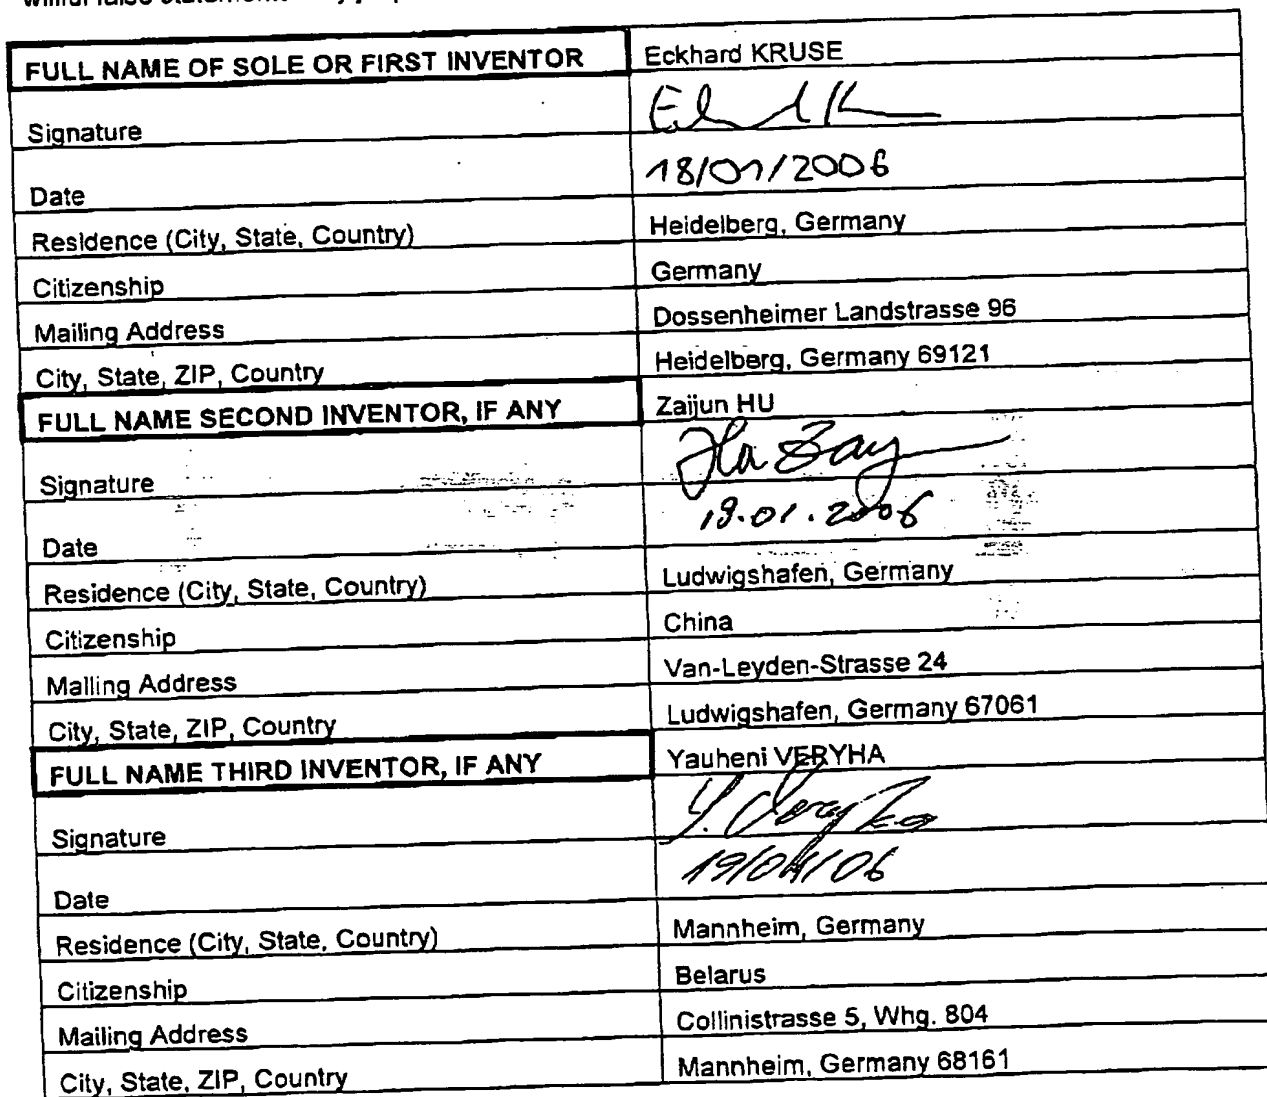 FULL NAME OF SOLE OR FIRST INVENTOR Eckhard KRUSE
Signature
Date 18/01/2006
Residence (City, State, Country) Heidelberg, Germany
Citizenship Germany
Mailing Address Dossenheimer Landstrasse 96
City, State, ZIP, Country Heidelberg, Germany 69121
FULL NAME SECOND INVENTOR, IF ANY Zaijun HU
Signature
Date 19.01.2006
Residence (City, State, Country) Ludwigshafen, Germany
Citizenship China
Mailing Address Van-Leyden-Strasse 24
City, State, ZIP, Country Ludwigshafen, Germany 67061
FULL NAME THIRD INVENTOR, IF ANY Yauheni VERYHA
Signature
Date
Residence (City, State, Country) Mannheim, Germany
Citizenship Belarus
Mailing Address Collinistrasse 5, Whg. 804
City, State, ZIP, Country Mannheim, Germany 68161